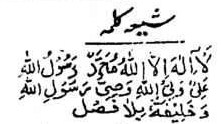 شیعہ کلمہ
لَآ اِلٰهَ اِلَّا اللّٰهُ مُحَمَّدٌ رَّسُوْلُ اللّٰهِ
عَلِیٌّ وَلِیُّ اللّٰهِ وَصِیُّ رَسُوْلِ اللّٰهِ
وَ خَلِیْفَتُهٗ بِلَا فَصْل